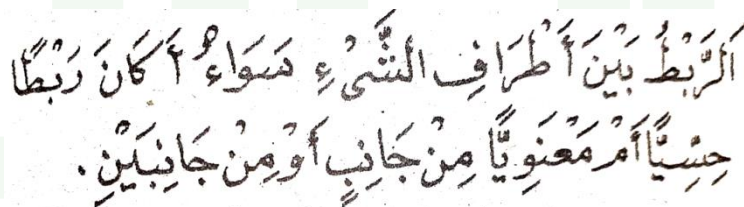 اَلرَّبْطُ بَيْنَ أَطْرَافِ الشَّيْءِ سَوَاءٌ أَكَانَ رَبْطًا
حِسِيًّا أَمْ مَعْنَوِيًّا مِنْ جَانِبٍ أَوْ مِنْ جَانِبَيْنِ.